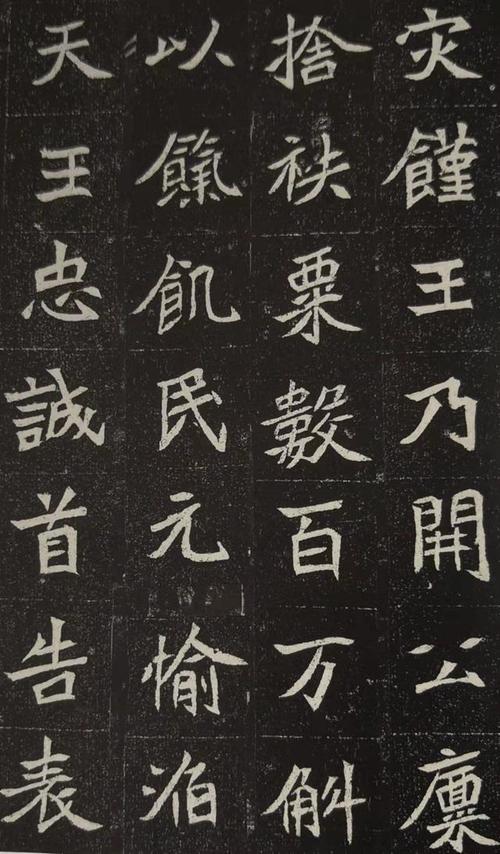 灾饉王乃開公廪
捨袟粟數百万斛
以餼飢民元愉滔
天王忠誠首告表